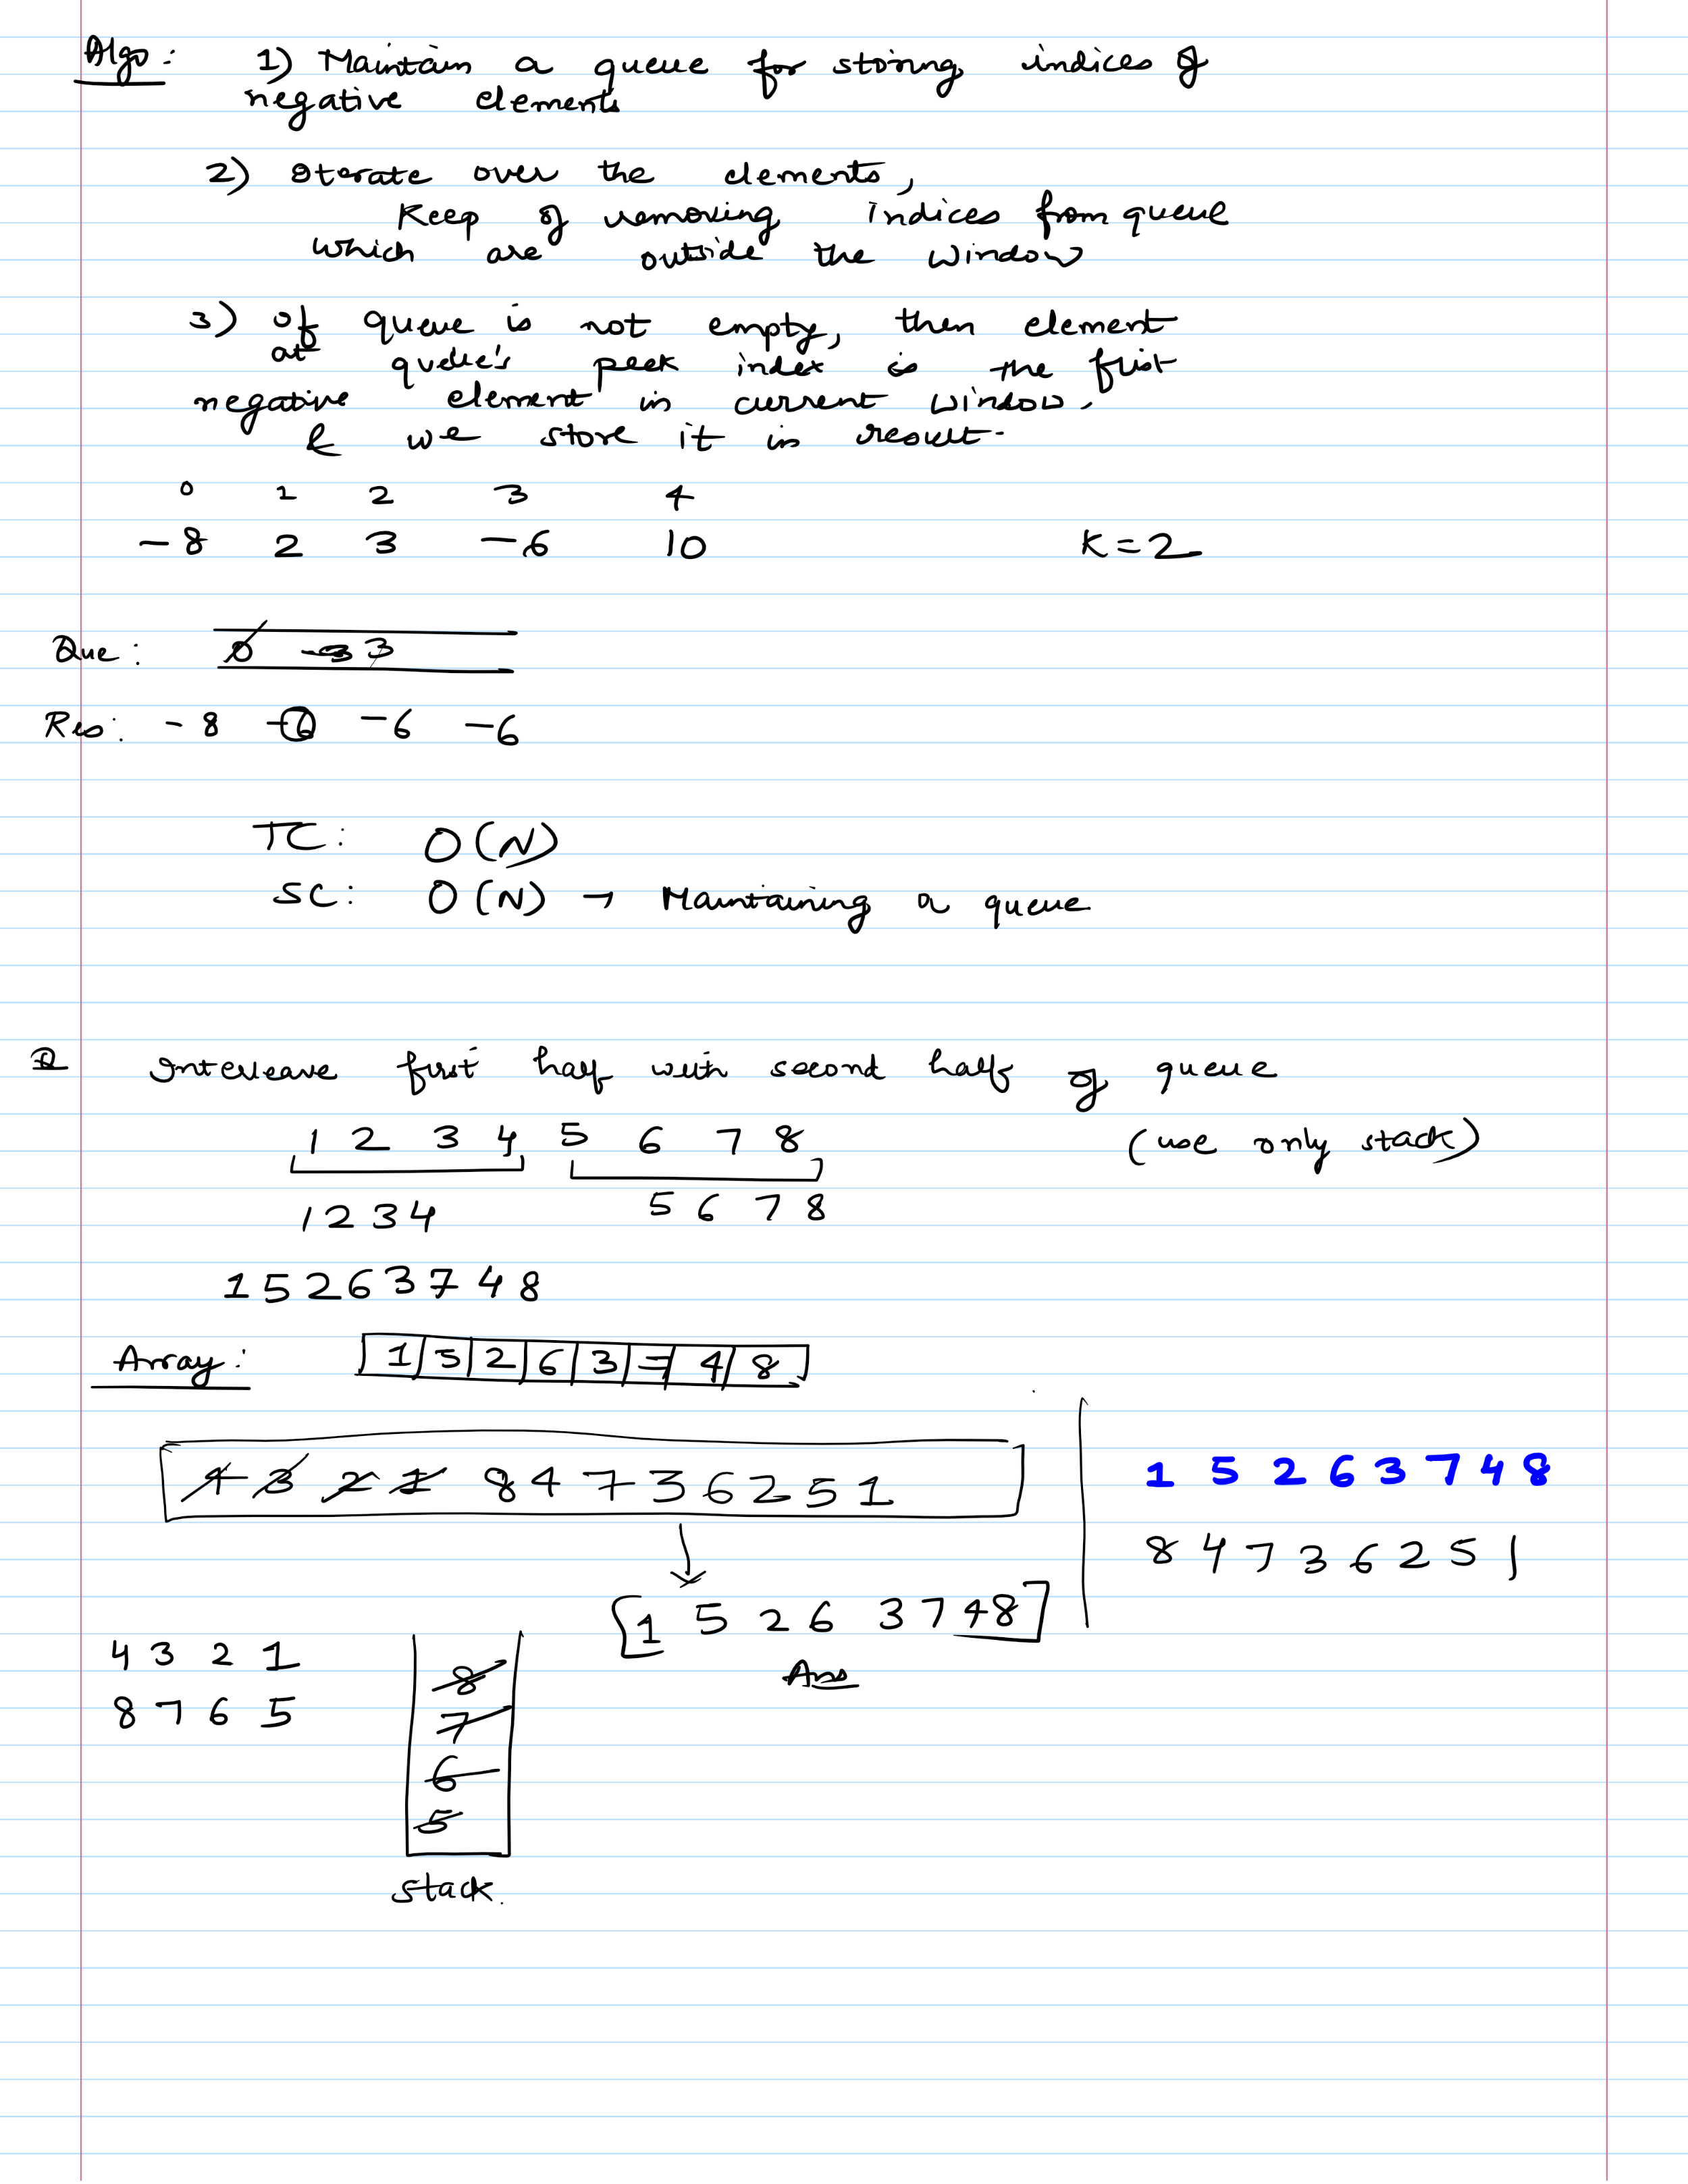 Algo: 1) Maintain a queue for storing indices of
negative elements
2) Iterate over the elements,
Keep of removing indices from queue
which are outside the window
3) If queue is not empty, then element
at queue's peek index is the first
negative element in current window.
& we store it in result.
0 1 2 3 4
-8 2 3 -6 10 K=2
Que: 0 3
Res: -8 0 -6 -6
TC: O(N)
SC: O(N) → Maintaining a queue
Q Interleave first half with second half of queue
1 2 3 4 5 6 7 8 (use only stack)
1 2 3 4 5 6 7 8
1 5 2 6 3 7 4 8
Array: 1 5 2 6 3 7 4 8
4 3 2 1 8 4 7 3 6 2 5 1
1 5 2 6 3 7 4 8
8 4 7 3 6 2 5 1
[1 5 2 6 3 7 4 8]
Ans
4 3 2 1
8 7 6 5
8
7
6
5
stack.